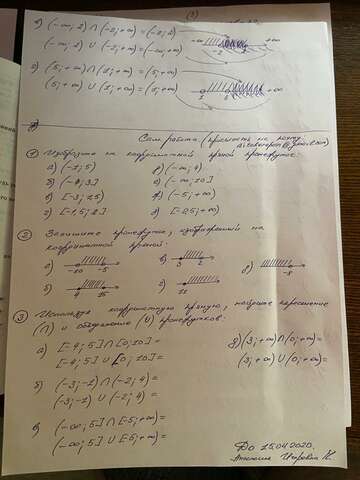 (-∞; 2) ∩ (-2; +∞) = (-2; 2)
(-∞; 2) ∪ (-2; +∞) = (-∞; +∞)
(5; +∞) ∩ (1; +∞) = (5; +∞)
(5; +∞) ∪ (1; +∞) = (1; +∞)
-∞ -2 2 +∞
1 5 +∞
Сам. работа (прислать на почту
① Изобразите на координатной прямой промежуток:
а) (-1; 5) г) (-∞; 4)
б) (-4; 3] е) (-∞; 10]
в) [-3; 25) ж) (-5; +∞)
г) [-1,5; 2] з) [-25; +∞)
② Запишите промежуток, изображенный на
координатной прямой:
а) -20 -5 в) 3 7 д) -8
б) 4 15 г) 11
③ Используя координатную прямую, найдите пересечение
(∩) и объединение (∪) промежутков.
а) [-4; 5] ∩ [0; 10] =
[-4; 5] ∪ [0; 10] =
г) (3; +∞) ∩ (0; +∞) =
(3; +∞) ∪ (0; +∞) =
б) (-3; -1) ∩ (-2; 4) =
(-3; -1) ∪ (-2; 4) =
в) (-∞; 5] ∩ [-5; +∞) =
(-∞; 5] ∪ [-5; +∞) =
До 15.04.2020.